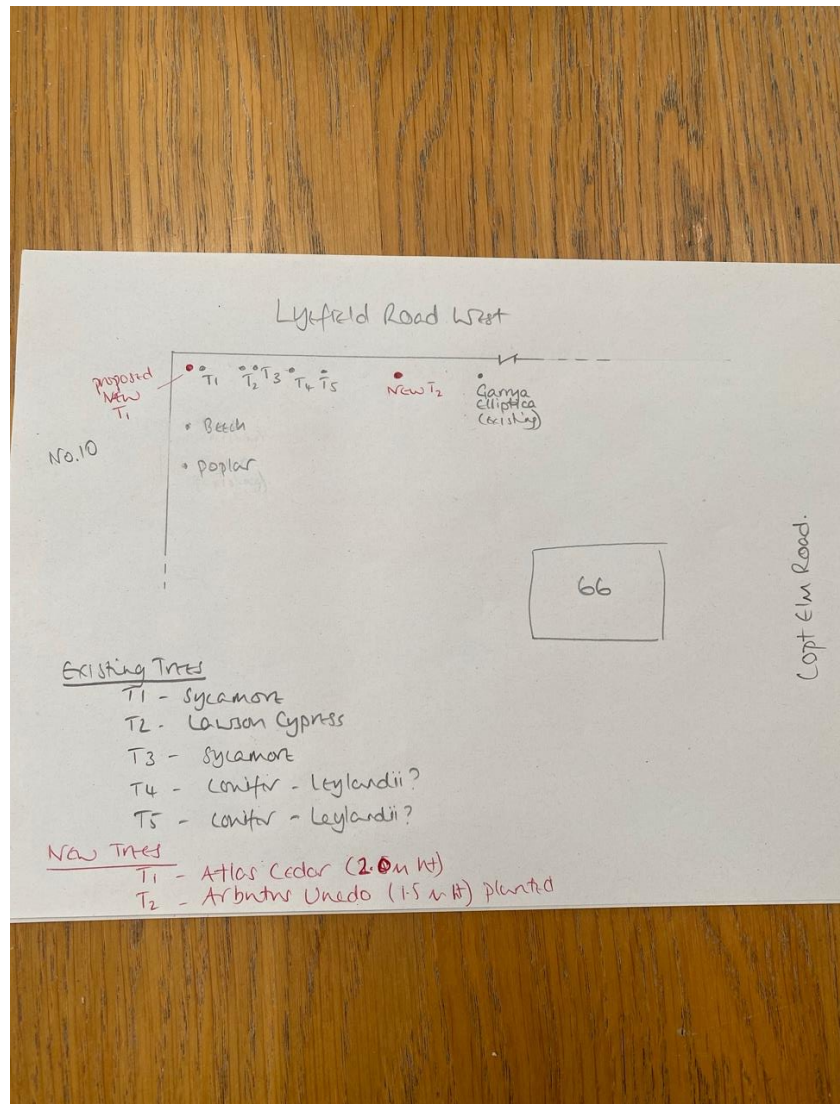 Lyefield Road West
proposed
NEW
T1
T1 T2 T3 T4 T5
NEW T2
Garrya
Elliptica
(existing)
No.10
Beech
poplar
66
Copt Elm Road.
Existing Trees
T1 - Sycamore
T2 - Lawson Cypress
T3 - Sycamore
T4 - conifer - Leylandii?
T5 - conifer - Leylandii?
New Trees
T1 - Atlas Cedar (2.0m ht)
T2 - Arbutus Unedo (1.5m ht) planted